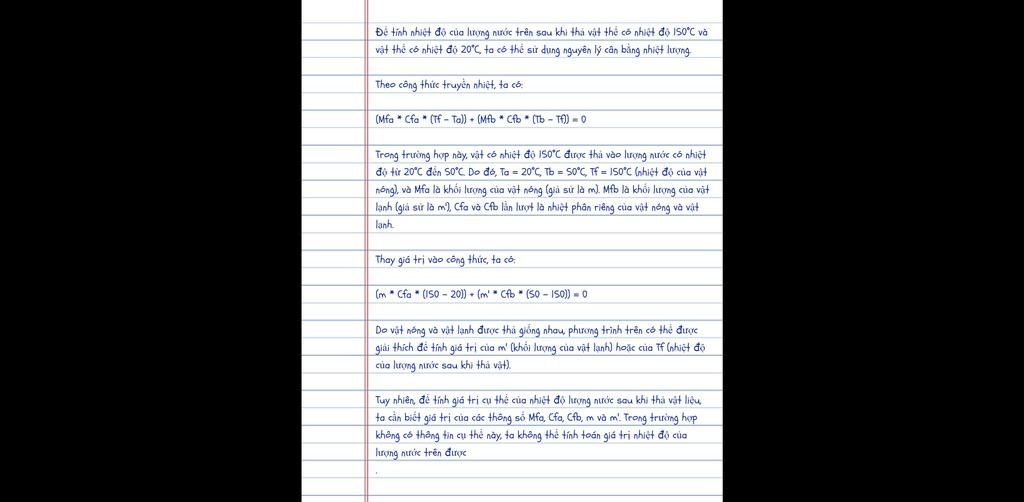 Để tính nhiệt độ của lượng nước trên sau khi thả vật thể có nhiệt độ 150°C và
vật thể có nhiệt độ 20°C, ta có thể sử dụng nguyên lý cân bằng nhiệt lượng.
Theo công thức truyền nhiệt, ta có:
(Mfa * Cfa * (Tf - Ta)) + (Mfb * Cfb * (Tb - Tf)) = 0
Trong trường hợp này, vật có nhiệt độ 150°C được thả vào lượng nước có nhiệt
độ từ 20°C đến 50°C. Do đó, Ta = 20°C, Tb = 50°C, Tf = 150°C (nhiệt độ của vật
nóng), và Mfa là khối lượng của vật nóng (giả sử là m). Mfb là khối lượng của vật
lạnh (giả sử là m'), Cfa và Cfb lần lượt là nhiệt phân riêng của vật nóng và vật
lạnh.
Thay giá trị vào công thức, ta có:
(m * Cfa * (150 - 20)) + (m' * Cfb * (50 - 150)) = 0
Do vật nóng và vật lạnh được thả giống nhau, phương trình trên có thể được
giải thích để tính giá trị của m' (khối lượng của vật lạnh) hoặc của Tf (nhiệt độ
của lượng nước sau khi thả vật).
Tuy nhiên, để tính giá trị cụ thể của nhiệt độ lượng nước sau khi thả vật liệu,
ta cần biết giá trị của các thông số Mfa, Cfa, Cfb, m và m'. Trong trường hợp
không có thông tin cụ thể này, ta không thể tính toán giá trị nhiệt độ của
lượng nước trên được
.